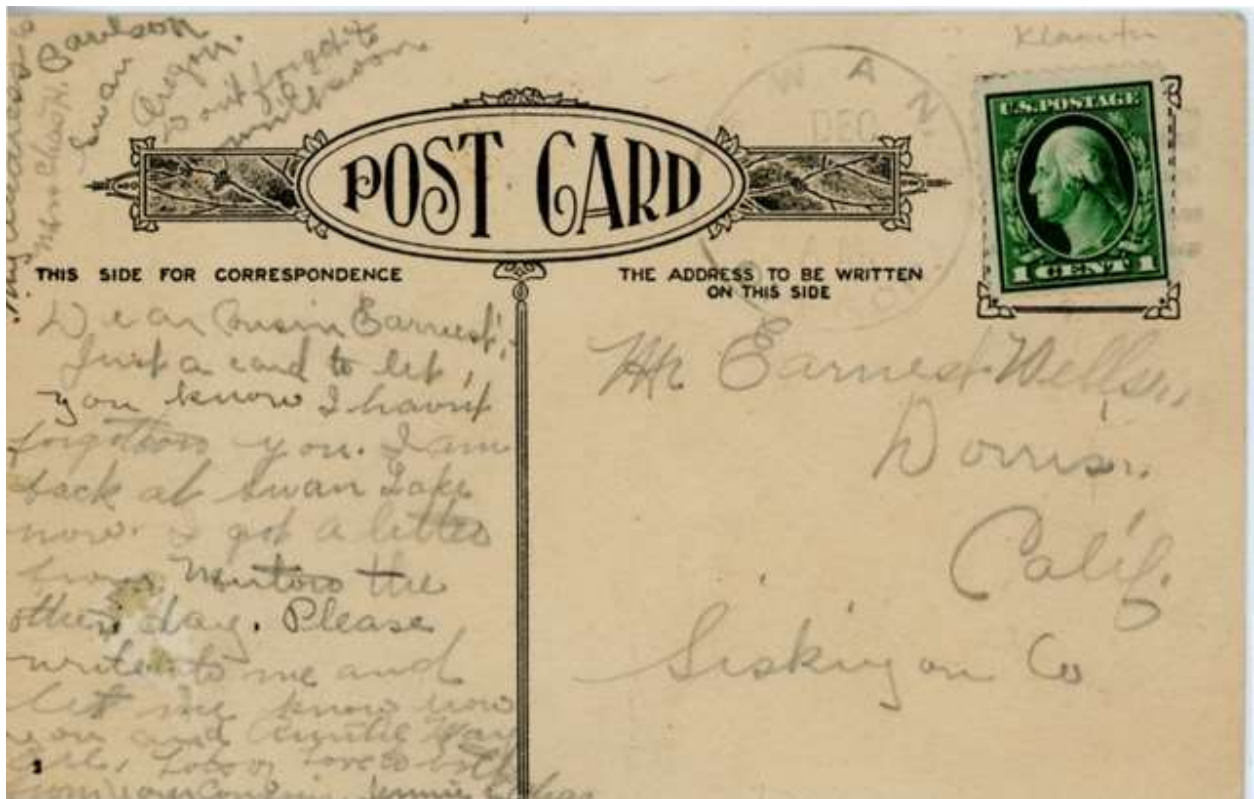 Klamath
My address is
Mrs Chas. N. Paulson
Swan
Oregon.
Do not forget to
write soon
POST CARD
WAN.
DEC
U.S. POSTAGE
1 CENT 1
THIS SIDE FOR CORRESPONDENCE
THE ADDRESS TO BE WRITTEN
ON THIS SIDE
Dear Cousin Earnest;
Just a card to let,
you know I havnt
forgotten you. I am
back at Swan Lake
now. I got a letter
from the
other day. Please
write to me and
let me know how
you and Auntie May
are, Lots of love to both
from your Cousin Jennie
Mr Earnest Wellser,
Dorris.
Calif.
Siskiyou Co